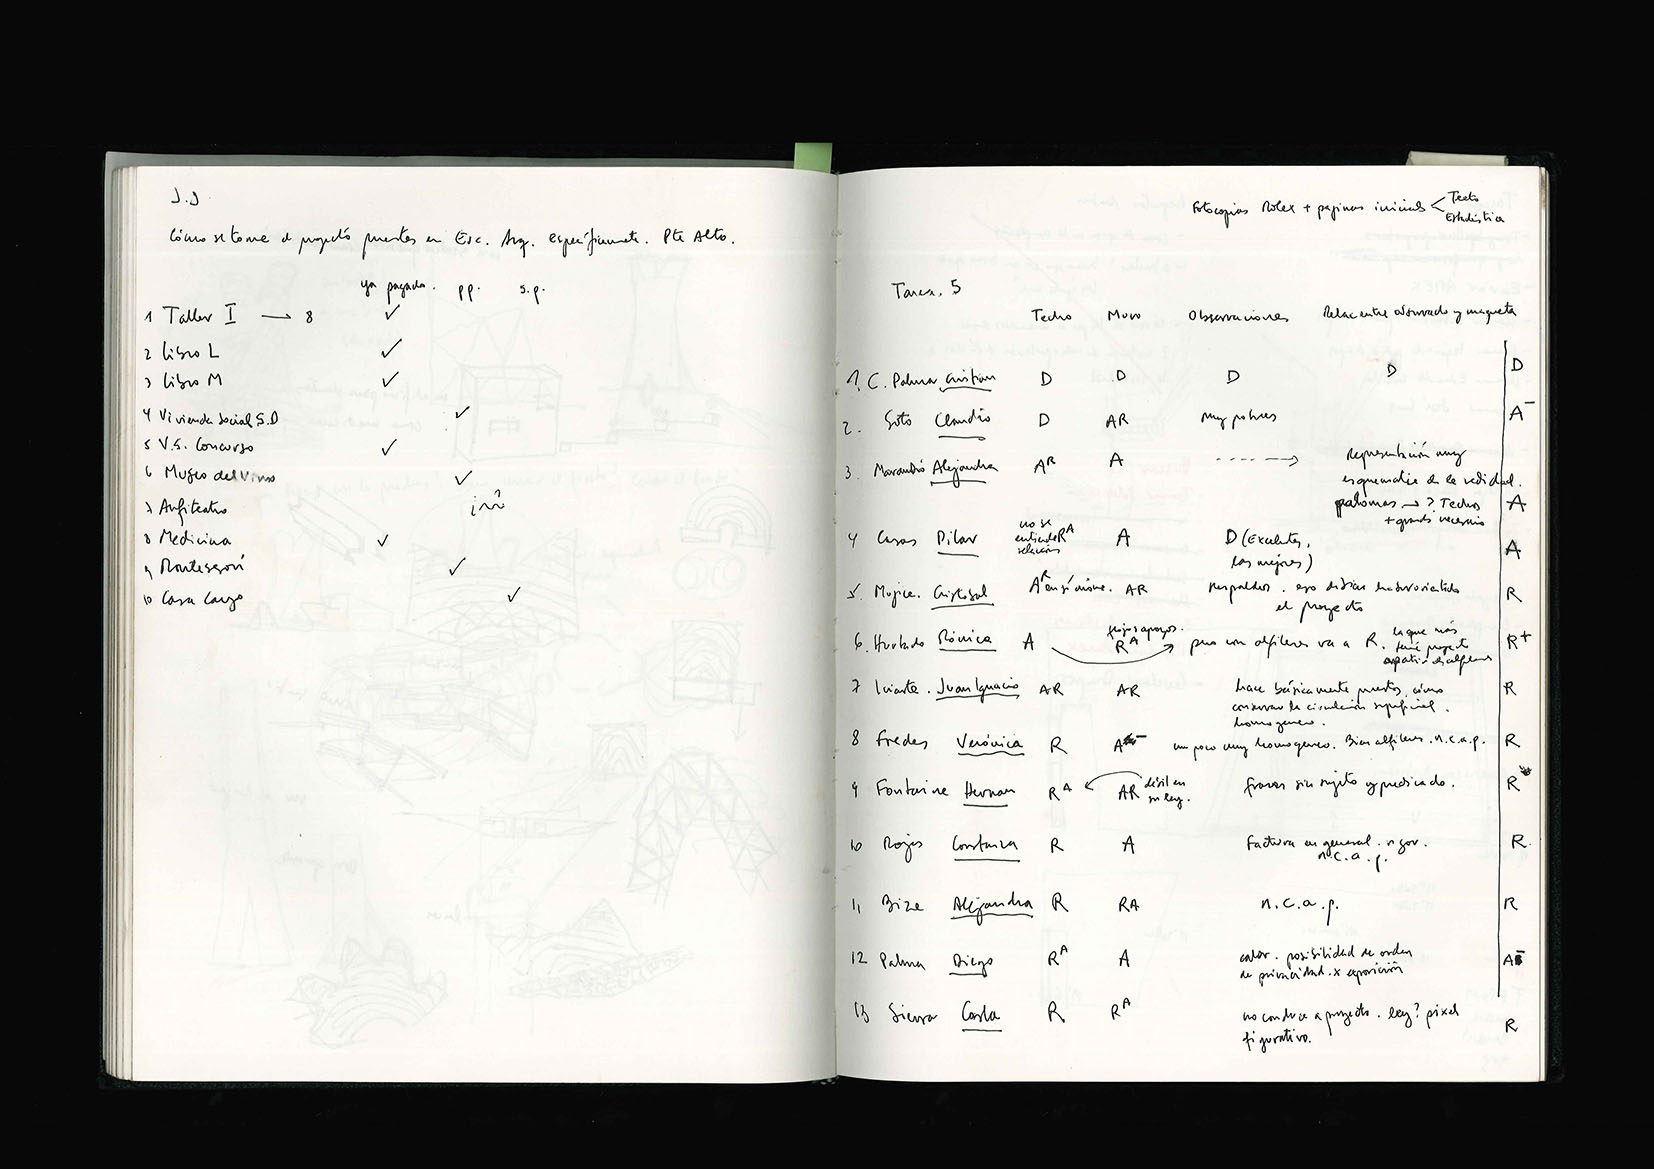 J.J
Cómo se tome el proyecto puentes en Esc. Arq. específicamente. Pte Alto.
ya pagado. pp. s.p.
1 Taller I → 8 ✓
2 Libro L ✓
3 Libro M ✓
4 Vivienda Social S.D ✓
5 V.S. Concurso ✓
6 Museo del Vino ✓
7 Anfiteatro
8 Medicina ✓
9 Montessori ✓
10 Casa Cargo ✓
Fotocopias Rolex + paginas iniciales < Texto
Estadistica
Tarea. 5
Techo Muro Observaciones Relac entre observado y maqueta
1. C. Palma Cristian D D D D D
2. Soto Claudio D AR muy pobres A-
3. Alejandra AR A ----→ Representación muy
esquematica de la realidad.
palomas → ? Techos
+ grande necesario A
4 Casas Pilar no se
entiende RA
relación A D (Excelentes,
las mejores) A
5. Mujica. Cristobal AR AR R
el proyecto
6. Hurtado Mónica A flojos apoyos.
RA pero con alfileres va a R. la que más
tiene proyecto
a partir de alfileres R+
7 Iriarte. Juan Ignacio AR AR hace básicamente puentes, cómo
conservar la circulación superficial.
homogeneo. R
8 Fredes Verónica R A- un poco muy homogeneo. Bien alfileres. n.c.a.p. R
9 Fontaine Hernan RA AR débil en
su ley. frases sin sujeto y predicado. R
10 Rojas Constanza R A Factura en general. rigor.
n.c.a.p. R
11 Bize Alejandra R RA n.c.a.p. R
12 Palma Diego RA A color. posibilidad de orden
de privacidad. x exposición A-
13 Sierra Carla R RA no conduce a proyecto. ley? pixel
figurativo. R